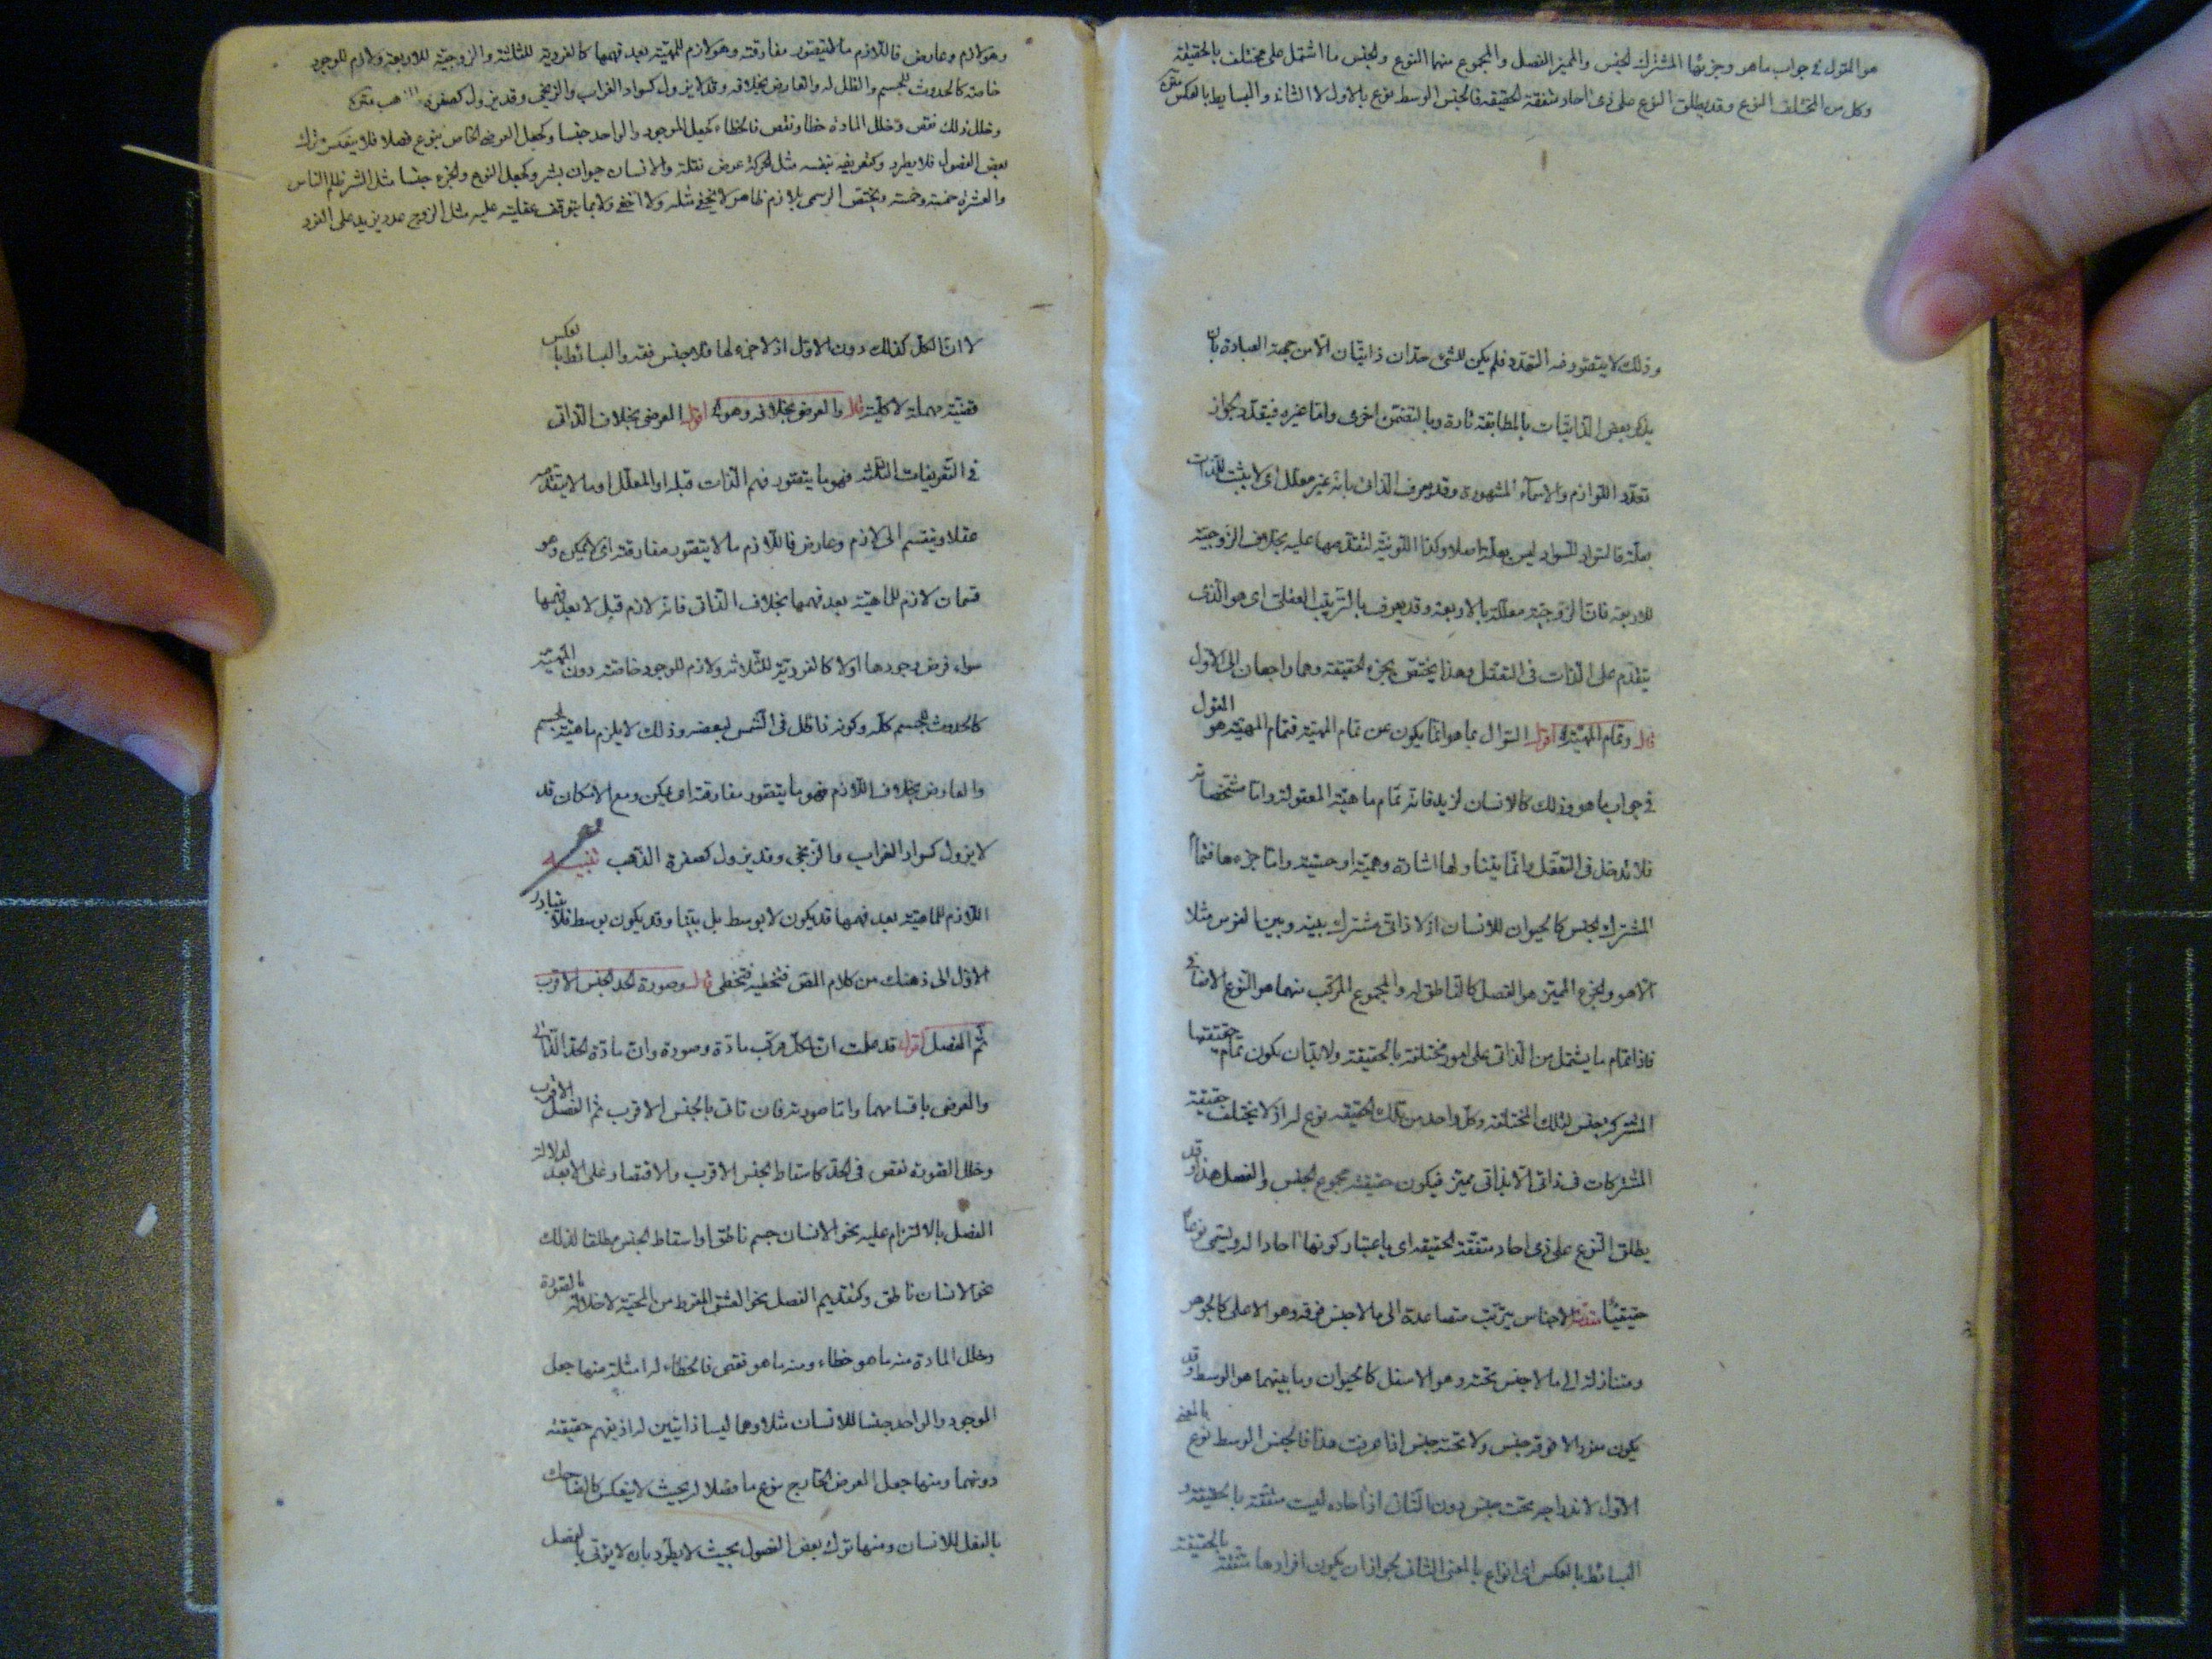 هو المقول في جواب ما هو وجزئها المشترك الجنس والمميز الفصل والمجموع منهما النوع والجنس ما اشتمل على مختلف بالحقيقة
وكل من المختلف النوع وقد يطلق النوع على ذى احاد متفقة الحقيقة فالجنس الوسط نوع بالاول لا الثانى والبسايط بالعكس
وذلك لا يتصور فيه التعدد فلم يكن للشئ حدان ذاتيان الا من جهة العبادة بان
يذكر بعض الذاتيات بالمطابقة تارة وبالتضمن اخرى واما غيره فيتعدد لجواز
تعدد اللوازم والاسماء المشهورة وقد يعرف الذاتى بانه غير معلل اى لا يثبت للذات
بعلة فالسواد للسواد ليس بعلة اصلا وكذا اللونية لتقدمها عليه بخلاف الزوجية
للاربعة فان الزوجية معللة بالاربعة وقد يعرف بالترتيب العقلى اى هو الذى
يتقدم على الذات فى التعقل وهذا يختص بجزء الحقيقة وهما راجعان الى الاول
قال وتمام المهية اقول السؤال بما هو انما يكون عن تمام المهية فتمام المهية هو المقول
فى جواب ما هو وذلك كالانسان لزيد فانه تمام ماهيته المعقولة واما مشخصاته
فلا تدخل فى التعقل وانما يتناولها اشارة وهمية او حسية واما جزءها فتمام
المشترك الجنس كالحيوان للانسان اذ لا ذاتى مشترك بينه وبين الفرس مثلا
الا هو والجزء المميز هو الفصل كالناطق له والمجموع المركب منهما هو النوع الاضافى
فاذا تمام ما يشتمل من الذاتى على امور مختلفة بالحقيقة ولا بد ان يكون تمام حقيقتها
المشتركة جنس لتلك المختلفة وكل واحد من تلك الحقيقة نوع له اذ لا يختلف حقيقة
المشتركات فى ذاتى الا بذاتى مميز فيكون حقيقته مجموع الجنس والفصل هذا وقد
يطلق النوع على ذى احاد متفقة الحقيقة اى باعتبار كونها احادا له ويسمى نوعا
حقيقيا الاجناس تترتب متصاعدة الى ما لا جنس فوقه وهو الاعلى كالجوهر
ومتنازلة الى ما لا جنس تحته وهو الاسفل كالحيوان وما بينهما هو الوسط وقد
يكون مفردا لا فوقه جنس ولا تحته جنس اذا عرفت هذا فالجنس الوسط نوع بالمعنى
الاول لاندراجه تحت جنس دون الثانى اذ احاده ليست متفقة بالحقيقة و
البسائط بالعكس اى انواع بالمعنى الثانى لجواز ان يكون افرادها متفقة بالحقيقة
وهو لازم وعارض فاللازم ما لا يتصور مفارقته وهو لازم للمهية بعد فهمها كالفردية للثلثة والزوجية للاربعة ولازم للوجود
خاصة كالحدوث للجسم والظل له والعارض بخلافه وقد لا يزول كسواد الغراب والزنجى وقد يزول كصفرة الذهب
وخلل ذلك نقص وخلل المادة خطأ ونقص فالخطاء كجعل الموجود والواحد جنسا وكجعل العرض الخاص بنوع فصلا فلا ينعكس وترك
بعض الفصول فلا يطرد وكتعريفه بنفسه مثل الحركة عرض نقلة والانسان حيوان بشر وكجعل النوع والجزء جنسا مثل الشر ظلم الناس
والعشرة خمسة وخمسة ويختص الرسمى بلازم ظاهر لا بخفى مثله ولا اخفى ولا بما يتوقف عقليته عليه مثل الزوج عدد يزيد على الفرد
لا ان الكل كذلك دون الاول اذ لا جزء لها فلا جنس فقوله والبسائط بالعكس
قضية مهملة لا كلية قال والعرضى بخلافه وهو اقول العرضى بخلاف الذاتى
فى التعريفات الثلثة فهو ما يتصور فهم الذات قبله او المعلل او ما لا يتقدمه
عقلا وينقسم الى لازم وعارض فاللازم ما لا يتصور مفارقته اى لا يمكن وهو
قسمان لازم للماهية بعد فهمها بخلاف الذاتى فانه لازم قبل لا بعد فهمها
سواء فرض وجودها اولا كالفردية للثلاثة ولازم للوجود خاصة دون المهية
كالحدوث للجسم كله وكونه ذا ظل فى الشمس لبعضه وذلك لا يلزم ماهية الجسم
والعارض بخلاف اللازم فهو ما يتصور مفارقته اى يمكن ومع الامكان قد
لا يزول كسواد الغراب والزنجى وقد يزول كصفرة الذهب تنبيه
اللازم للماهية بعد فهمها قد يكون لا بوسط بل بينا وقد يكون بوسط فلا يتبادر
الاول الى ذهنك من كلام المص فتخطيه فتخطى قال وصورة الحد الجنس الاقرب
ثم الفصل اقول قد علمت ان لكل مركب مادة وصورة وان مادة الحد الذاتى
والعرضى باقسامهما واما صورته فان تاتى بالجنس الاقرب ثم الفصل
وخلل الصورة نقص فى الحد كاسقاط الجنس الاقرب والاقتصار على الابعد لدلالة
الفصل بالالتزام عليه نحو الانسان جسم ناطق او اسقاط الجنس مطلقا لذلك
نحو الانسان ناطق وكتقديم الفصل نحو العشق المفرط من المحبة لاخلاله بالصورة
وخلل المادة منه ما هو خطاء ومنه ما هو نقص فالخطاء له امثلة منها جعل
الموجود والواحد جنسا للانسان مثلا وهما ليسا ذاتيين له اذ يفهم حقيقته
دونهما ومنها جعل العرض الخاص بنوع ما فصلا له بحيث لا ينعكس كالضاحك
بالفعل للانسان ومنها ترك بعض الفصول بحيث لا يطرد بان لا يؤتى بالفصل